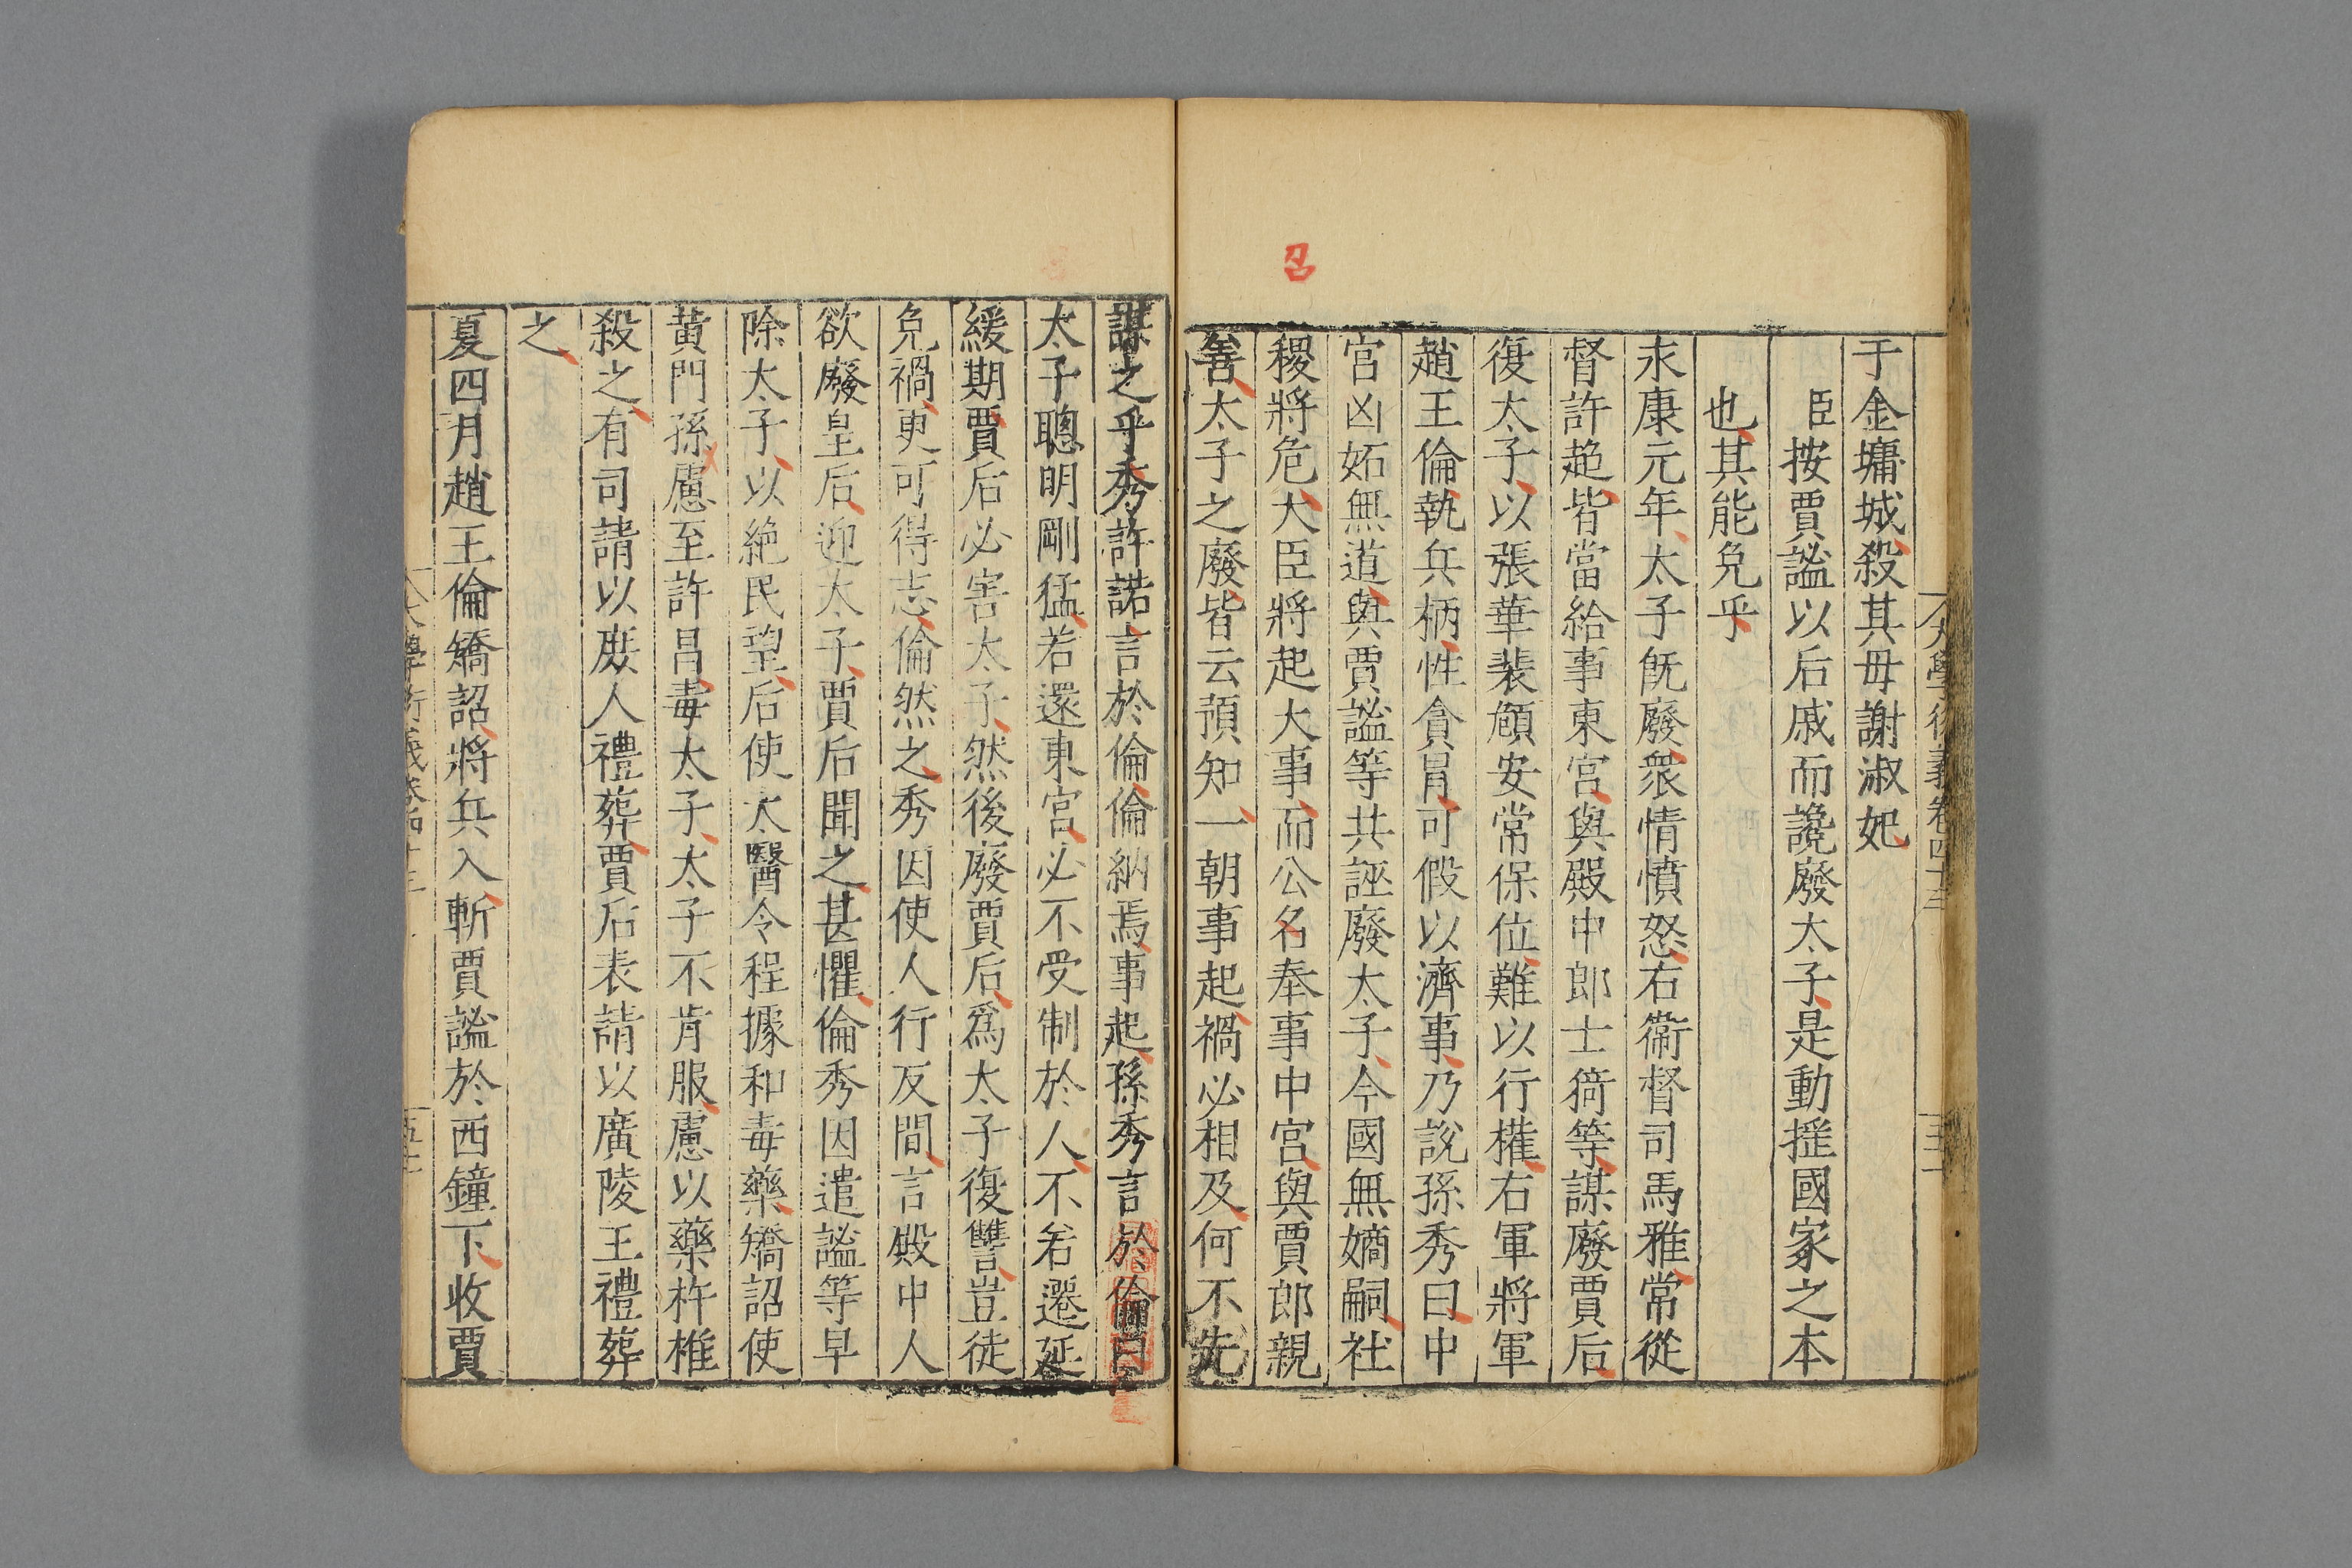 大學衍義卷四十三
于金墉城殺其母謝淑妃
臣按賈謐以后戚而讒廢太子是動揺國家之本
也其能免乎
永康元年太子既廢衆情憤怒右衛督司馬雅常從
督許趋皆當給事東宮與殿中郎士猗等謀廢賈后
復太子以張華裴頠安常保位難以行權右軍將軍
趙王倫執兵柄性貪冒可假以濟事乃說孫秀曰中
宮凶妬無道與賈謐等共誣廢太子今國無嫡嗣社
稷將危大臣將起大事而公名奉事中宮與賈郎親
善太子之廢皆云預知一朝事起禍必相及何不先
召
謀之乎秀許諾言於倫倫納焉事起孫秀言於倫曰
太子聰明剛猛若還東宮必不受制於人不若遷延
緩期賈后必害太子然後廢賈后為太子復讐豈徒
免禍更可得志倫然之秀因使人行反間言殿中人
欲廢皇后迎太子賈后聞之甚懼倫秀因遣謐等早
除太子以絕民望后使太醫令程據和毒藥矯詔使
黄門孫慮至許昌毒太子太子不肯服慮以藥杵椎
殺之有司請以庶人禮葬賈后表請以廣陵王禮葬
之
夏四月趙王倫矯詔將兵入斬賈謐於西鐘下收賈
大學衍義卷四十三